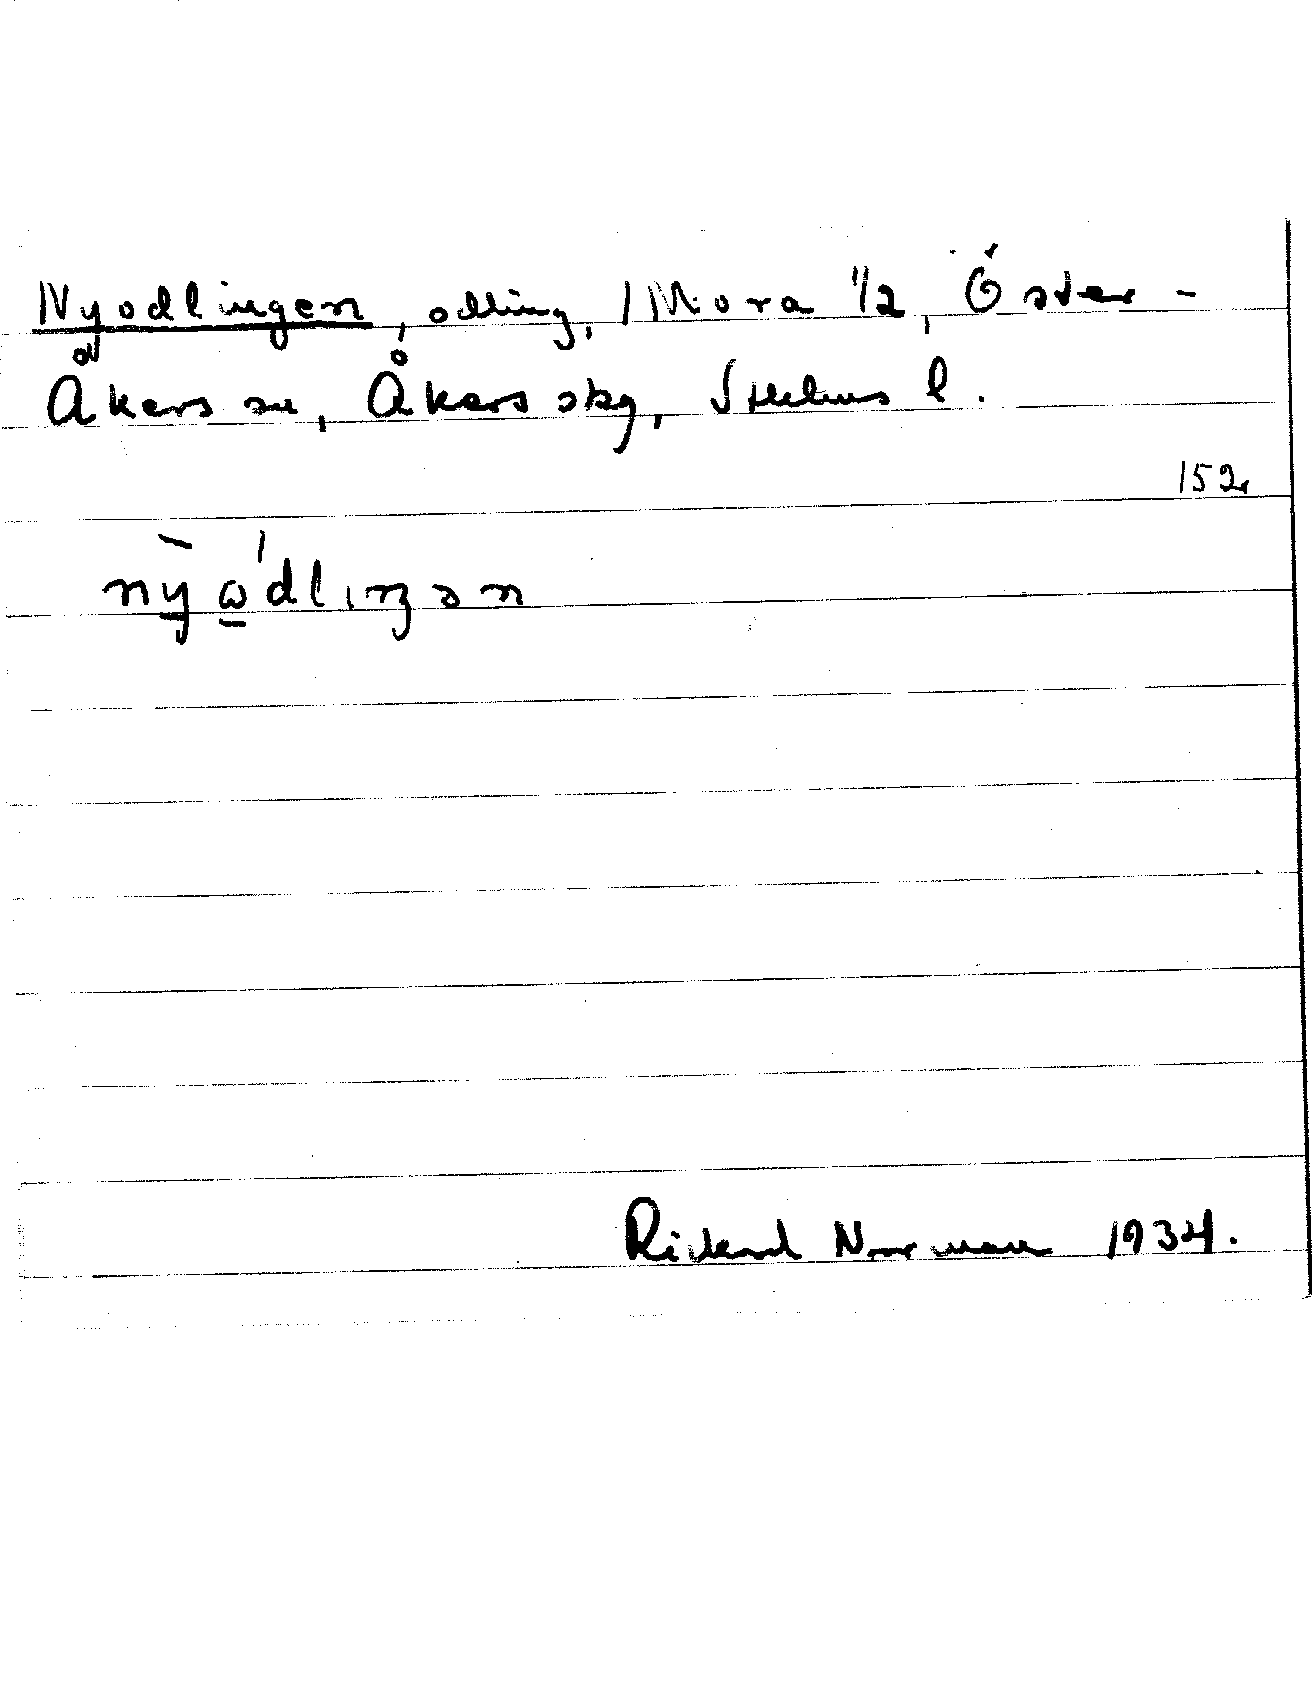 Nyodlingen, odling, 1 Mora 1/2, Öster-
Åkers sn, Åkers skg, Sthlms l.
152
nỳώ̱dlıŋən
Rickard Norman 1934.